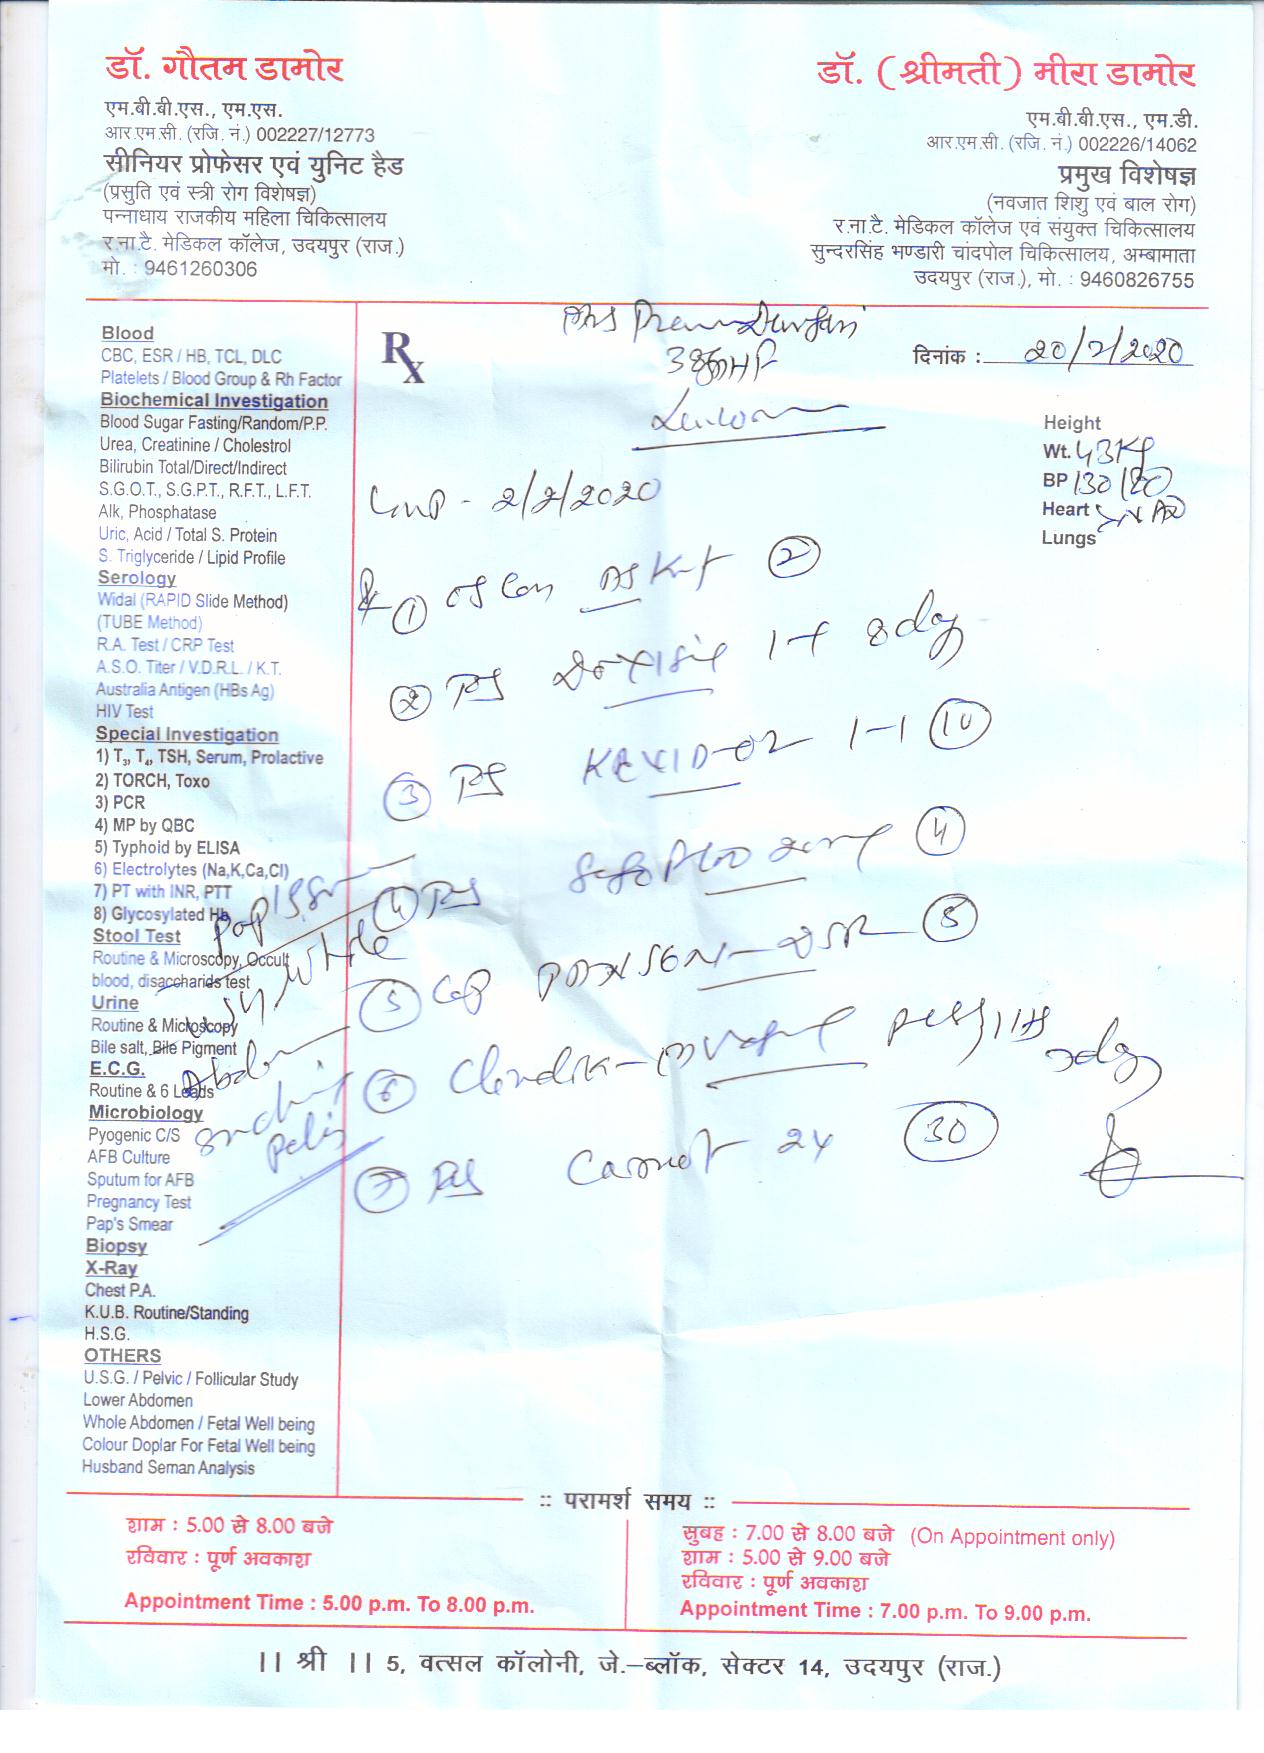 डॉ. गौतम डामोर
एम.बी.बी.एस., एम.एस.
आर.एम.सी. (रजि. नं.) 002227/12773
सीनियर प्रोफेसर एवं युनिट हैड
(प्रसुति एवं स्त्री रोग विशेषज्ञ)
पन्नाधाय राजकीय महिला चिकित्सालय
र.ना.टै. मेडिकल कॉलेज, उदयपुर (राज.)
मो. : 9461260306
डॉ. (श्रीमती) मीरा डामोर
एम.बी.बी.एस., एम.डी.
आर.एम.सी. (रजि. नं.) 002226/14062
प्रमुख विशेषज्ञ
(नवजात शिशु एवं बाल रोग)
र.ना.टै. मेडिकल कॉलेज एवं संयुक्त चिकित्सालय
सुन्दरसिंह भण्डारी चांदपोल चिकित्सालय, अम्बामाता
उदयपुर (राज.), मो. : 9460826755
Blood
CBC, ESR / HB, TCL, DLC
Platelets / Blood Group & Rh Factor
Biochemical Investigation
Blood Sugar Fasting/Random/P.P.
Urea, Creatinine / Cholestrol
Bilirubin Total/Direct/Indirect
S.G.O.T., S.G.P.T., R.F.T., L.F.T.
Alk, Phosphatase
Uric, Acid / Total S. Protein
S. Triglyceride / Lipid Profile
Serology
Widal (RAPID Slide Method)
(TUBE Method)
R.A. Test / CRP Test
A.S.O. Titer / V.D.R.L. / K.T.
Australia Antigen (HBs Ag)
HIV Test
Special Investigation
1) T3, T4, TSH, Serum, Prolactive
2) TORCH, Toxo
3) PCR
4) MP by QBC
5) Typhoid by ELISA
6) Electrolytes (Na,K,Ca,Cl)
7) PT with INR, PTT
8) Glycosylated Hb
Stool Test
Routine & Microscopy, Occult
blood, disaccharids test
Urine
Routine & Microscopy
Bile salt, Bile Pigment
E.C.G.
Routine & 6 Leads
Microbiology
Pyogenic C/S
AFB Culture
Sputum for AFB
Pregnancy Test
Pap's Smear
Biopsy
X-Ray
Chest P.A.
K.U.B. Routine/Standing
H.S.G.
OTHERS
U.S.G. / Pelvic / Follicular Study
Lower Abdomen
Whole Abdomen / Fetal Well being
Colour Doplar For Fetal Well being
Husband Seman Analysis
whole
Abdomen
Rx
दिनांक : 20/2/2020
Height
Wt. 43Kg
BP 130/80
Heart
Lungs
LMP - 2/2/2020
1 Kit 2
2 1-1 8 day
3 1-1 10
4 4
5 Cap DSR 8
6
7 24 30
:: परामर्श समय ::
शाम : 5.00 से 8.00 बजे
रविवार : पूर्ण अवकाश
Appointment Time : 5.00 p.m. To 8.00 p.m.
सुबह : 7.00 से 8.00 बजे (On Appointment only)
शाम : 5.00 से 9.00 बजे
रविवार : पूर्ण अवकाश
Appointment Time : 7.00 p.m. To 9.00 p.m.
|| श्री || 5, वत्सल कॉलोनी, जे.–ब्लॉक, सेक्टर 14, उदयपुर (राज.)